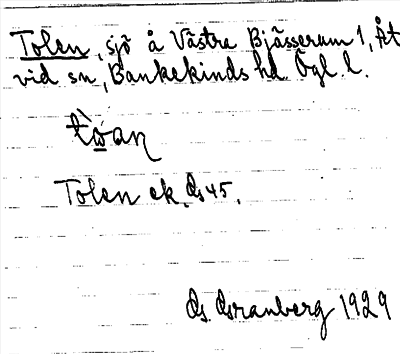 Tolen, sjö å Västra Bjässerum 1, Åt
vid sn, Bankekinds hd Ögl. l.
Tolen ek. ds 45.
Granberg 1929